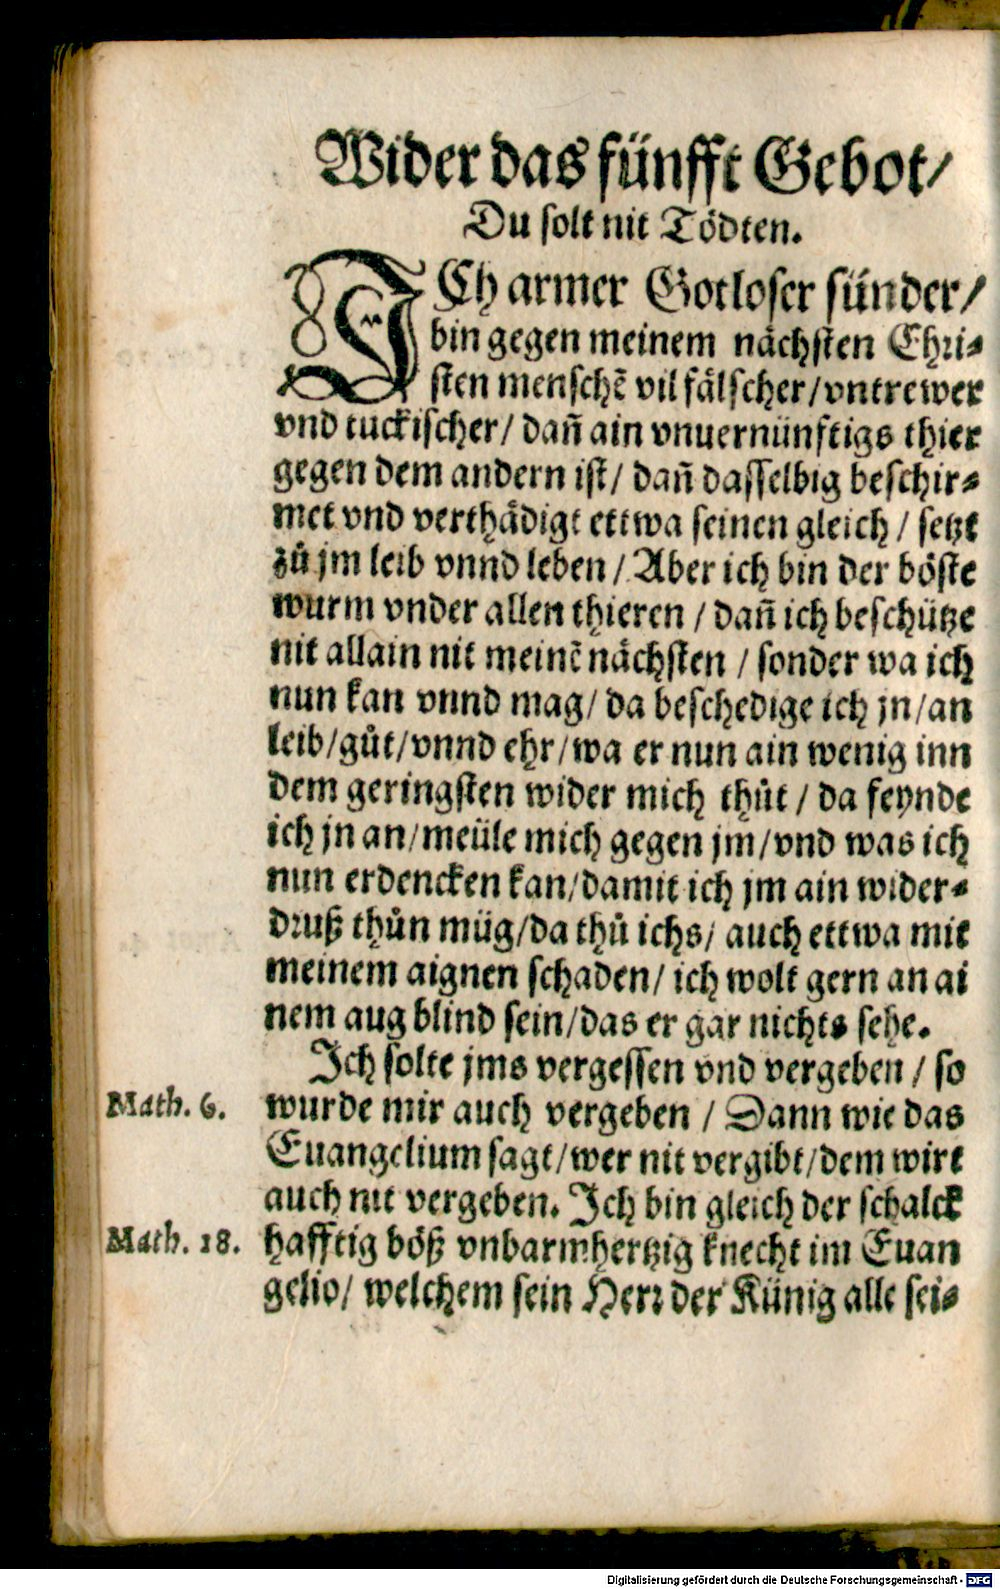 Wider das fünfft Gebot/
Du solt nit Tödten.
ICh armer Gotloser sünder/
bin gegen meinem nächsten Chri-
sten menschẽ vil fälscher/vntrewer
vnd tuckischer/ dañ ain vnuernünftigs thier
gegen dem andern ist/ dañ dasselbig beschir-
met vnd verthädigt ettwa seinen gleich / setzt
zů jm leib vnnd leben / Aber ich bin der böste
wurm vnder allen thieren / dañ ich beschütze
nit allain nit meinẽ nächsten / sonder wa ich
nun kan vnnd mag/ da beschedige ich jn/an
leib/gůt/vnnd ehr/wa er nun ain wenig inn
dem geringsten wider mich thůt / da feynde
ich jn an/meüle mich gegen jm/vnd was ich
nun erdencken kan/damit ich jm ain wider-
druß thůn müg/da thů ichs/ auch ettwa mit
meinem aignen schaden/ ich wolt gern an ai
nem aug blind sein/das er gar nichts sehe.
Ich solte jms vergessen vnd vergeben / so
Math. 6. wurde mir auch vergeben / Dann wie das
Euangelium sagt/wer nit vergibt/dem wirt
auch nit vergeben. Ich bin gleich der schalck
Math. 18. hafftig böß vnbarmhertzig knecht im Euan
gelio/ welchem sein Herr der Künig alle sei-
Digitalisierung gefördert durch die Deutsche Forschungsgemeinschaft - DFG